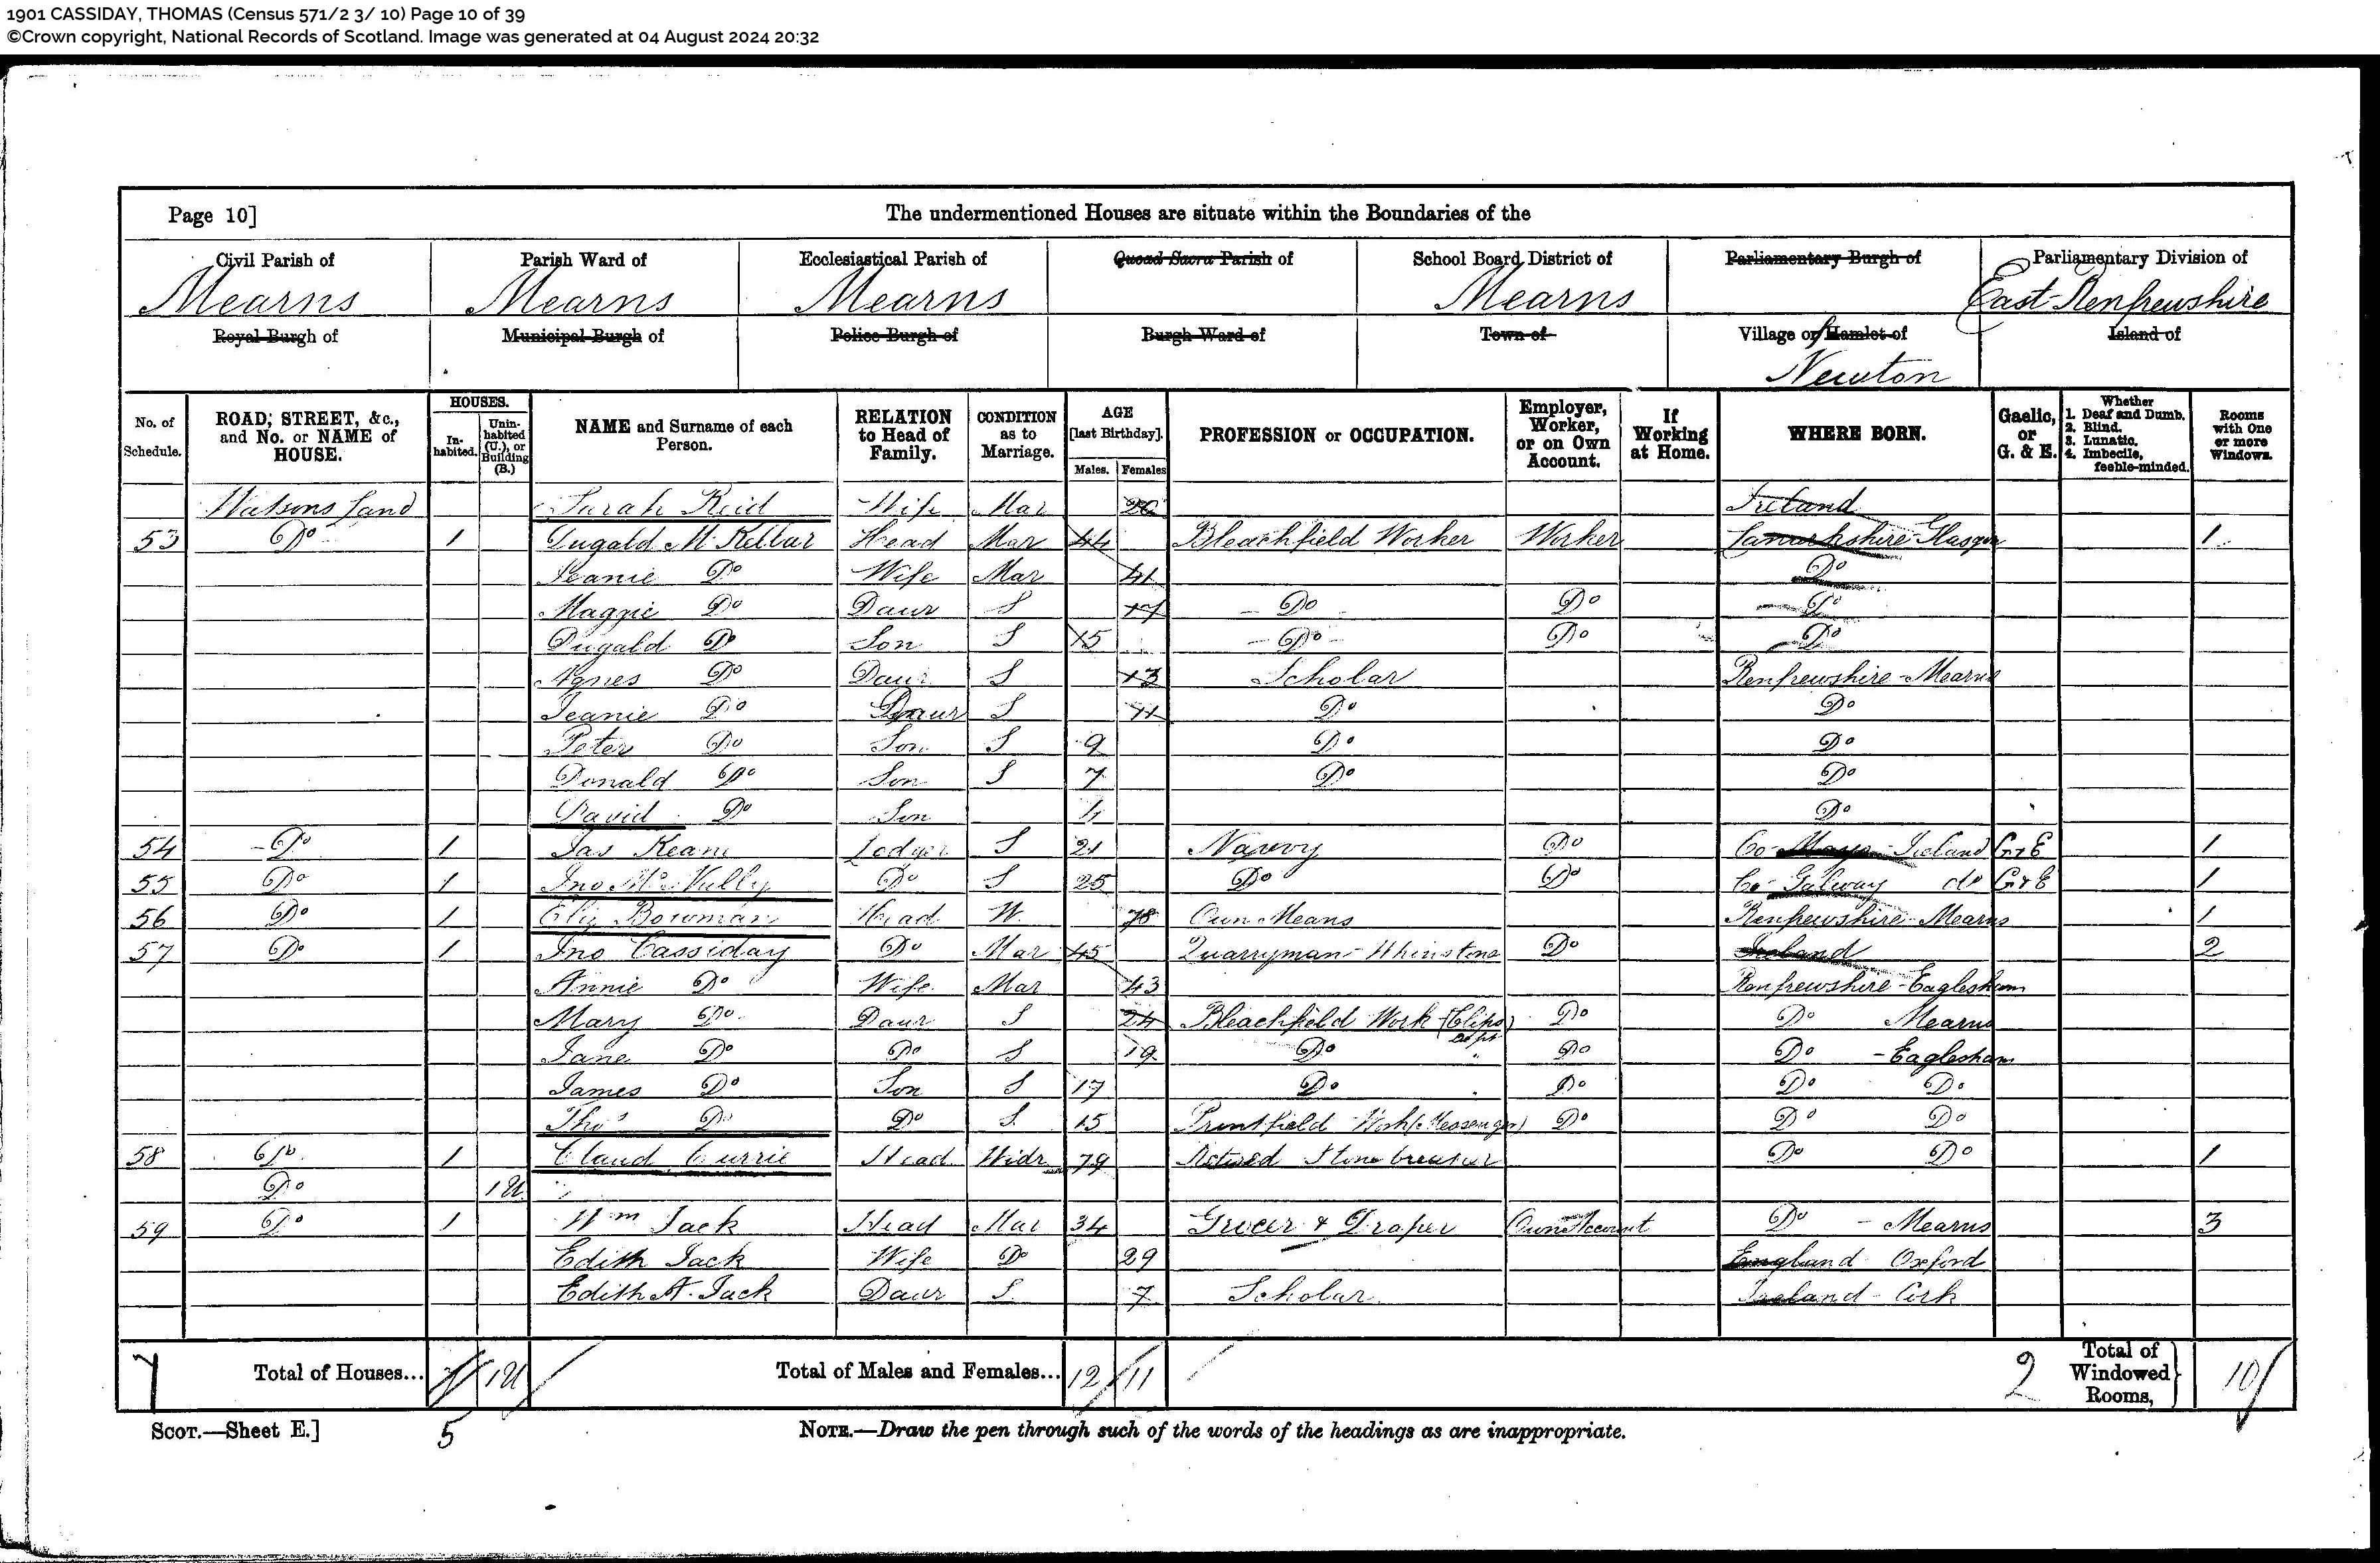 1901 CASSIDAY, THOMAS (Census 571/2 3/ 10) Page 10 of 39
©Crown copyright, National Records of Scotland. Image was generated at 04 August 2024 20:32
Page 10] The undermentioned Houses are situate within the Boundaries of the
Civil Parish of Parish Ward of Ecclesiastical Parish of Quoad Sacra Parish of School Board District of Parliamentary Burgh of Parliamentary Division of
Mearns Mearns Mearns Mearns East Renfrewshire
Royal Burgh of Municipal Burgh of Police Burgh of Burgh Ward of Town of Village or Hamlet of Island of
Newton
No. of Schedule. ROAD, STREET, &c., and No. or NAME of HOUSE. HOUSES. In-habited. Unin-habited (U.), or Building (B.) NAME and Surname of each Person. RELATION to Head of Family. CONDITION as to Marriage. AGE [last Birthday]. Males. Females PROFESSION or OCCUPATION. Employer, Worker, or on Own Account. If Working at Home. WHERE BORN. Gaelic, or G. & E. Whether 1. Deaf and Dumb. 2. Blind. 3. Lunatic. 4. Imbecile, feeble-minded. Rooms with One or more Windows.
Watsons Land Sarah Reid Wife Mar 20 Ireland
53 Do 1 Dugald McKellar Head Mar 44 Bleachfield Worker Worker Lanarkshire-Glasgow 1
Jeanie Do Wife Mar 41 Do
Maggie Do Daur S 17 Do Do Do
Dugald Do Son S 15 Do Do Do
Agnes Do Daur S 13 Scholar Renfrewshire-Mearns
Jeanie Do Daur S 11 Do Do
Peter Do Son S 9 Do Do
Donald Do Son S 7 Do Do
David Do Son Do
54 Do 1 Jas Keane Lodger S 21 Navvy Do Co-Mayo-Ireland G&E 1
55 Do 1 Jno Do S 25 Do Do Co-Galway do G&E 1
56 Do 1 Eliz Bowman Head W. 78 Own Means Renfrewshire-Mearns 1
57 Do 1 Jno Cassiday Do Mar 45 Quarryman-Whinstone Do Ireland 2
Annie Do Wife Mar 43 Renfrewshire-Eaglesham
Mary Do Daur S 24 Bleachfield Work (Clips Dept) Do Do Mearns
Jane Do Do S 19 Do " Do Do -Eaglesham
James Do Son S 17 Do Do Do Do
Thos Do Do S. 15 Printfield Work (Messenger) Do Do Do
58 Do 1 Claud Currie Head Widr 79 Retired Stone breaker Do Do 1
Do 1U
59 Do 1 Wm Jack Head Mar 34 Grocer & Draper Own Account Do - Mearns 3
Edith Jack Wife Do 29 England Oxford
Edith A. Jack Daur S. 7 Scholar Ireland-Cork
7 Total of Houses... 7 1U Total of Males and Females... 12 11 2 Total of Windowed Rooms, 10
SCOT.—Sheet E.] 5 NOTE.—Draw the pen through such of the words of the headings as are inappropriate.